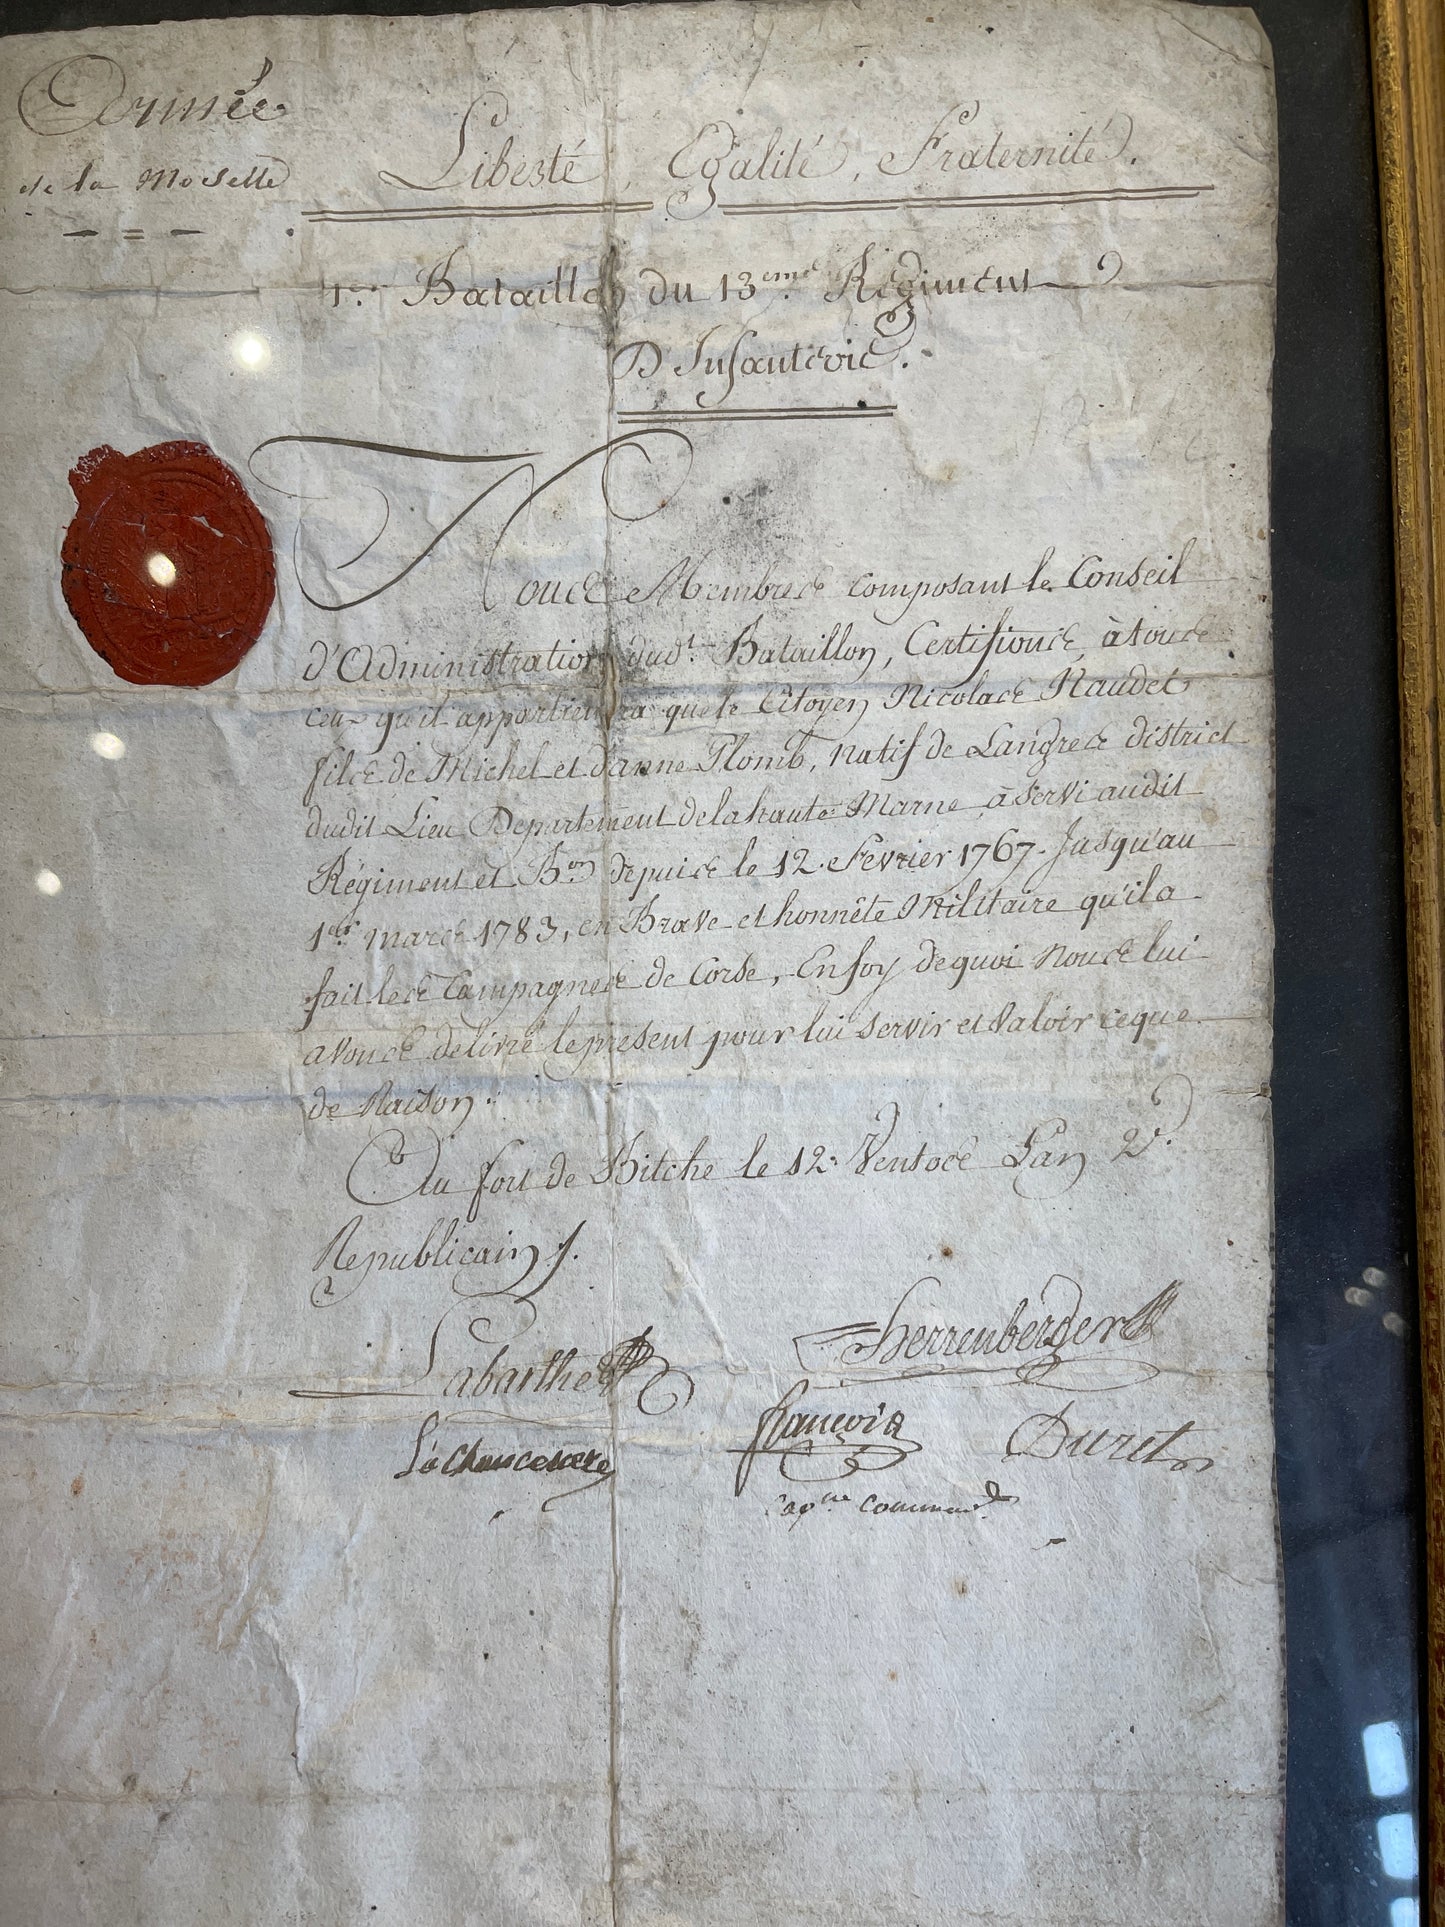 Armée
de la Moselle
Liberté, Egalité, Fraternité.
1er Bataillon du 13eme Régiment
D'Infanterie.
Nous Membres composant le Conseil
d'Administration dudt. Bataillon, Certifions, à tous
ceux qu'il appartiendra que le Citoyen Nicolas Naudet
fils de Michel et d'anne Plomb, natif de Langres district
dudit Lieu Departement de la haute Marne, à servi audit
Régiment et Bon depuis le 12. Fevrier 1767. Jusqu'au
1er mars 1783, en Brave et honnête Militaire qu'il a
fait les Campagnes de Corse, En foy de quoi Nous lui
avons delivré le present pour lui servir et valoir ce que
de Raison.
Au fort de Bitche le 12. Ventose Lan 2e.
Republicain
Labarthe
Herrenberger
François
Duret
capne command